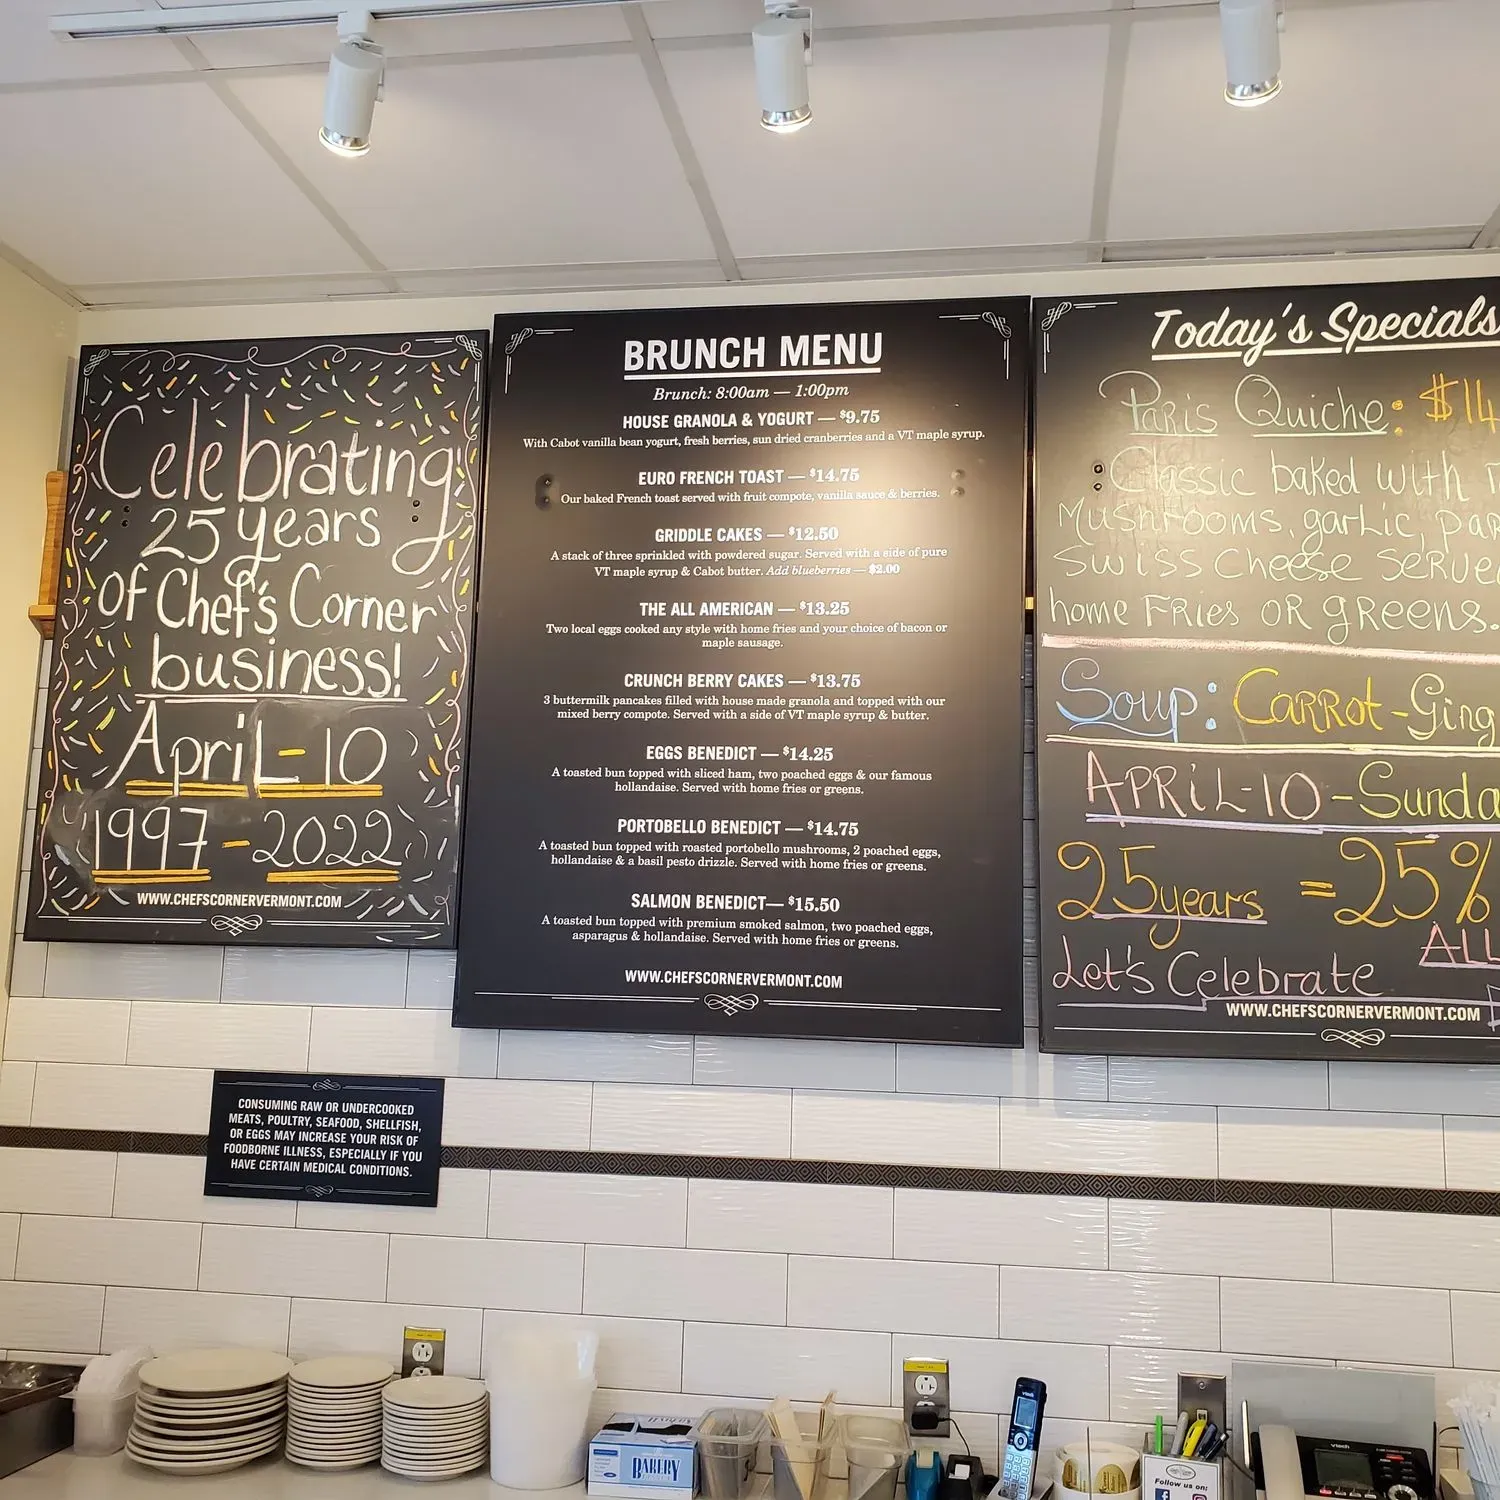 Celebrating
25 years
of Chef's Corner
business!
April-10
1997-2022
WWW.CHEFSCORNERVERMONT.COM
BRUNCH MENU
Brunch: 8:00am — 1:00pm
HOUSE GRANOLA & YOGURT — $9.75
With Cabot vanilla bean yogurt, fresh berries, sun dried cranberries and a VT maple syrup.
EURO FRENCH TOAST — $14.75
Our baked French toast served with fruit compote, vanilla sauce & berries.
GRIDDLE CAKES — $12.50
A stack of three sprinkled with powdered sugar. Served with a side of pure
VT maple syrup & Cabot butter. Add blueberries — $2.00
THE ALL AMERICAN — $13.25
Two local eggs cooked any style with home fries and your choice of bacon or
maple sausage.
CRUNCH BERRY CAKES — $13.75
3 buttermilk pancakes filled with house made granola and topped with our
mixed berry compote. Served with a side of VT maple syrup & butter.
EGGS BENEDICT — $14.25
A toasted bun topped with sliced ham, two poached eggs & our famous
hollandaise. Served with home fries or greens.
PORTOBELLO BENEDICT — $14.75
A toasted bun topped with roasted portobello mushrooms, 2 poached eggs,
hollandaise & a basil pesto drizzle. Served with home fries or greens.
SALMON BENEDICT— $15.50
A toasted bun topped with premium smoked salmon, two poached eggs,
asparagus & hollandaise. Served with home fries or greens.
WWW.CHEFSCORNERVERMONT.COM
Today's Specials
Paris Quiche: $14
Classic baked with
Mushrooms, garlic, par
Swiss Cheese Serve
home Fries or greens.
Soup: Carrot-Ging
APRIL-10-Sunda
25years = 25%
ALL
Let's Celebrate
WWW.CHEFSCORNERVERMONT.COM
CONSUMING RAW OR UNDERCOOKED
MEATS, POULTRY, SEAFOOD, SHELLFISH,
OR EGGS MAY INCREASE YOUR RISK OF
FOODBORNE ILLNESS, ESPECIALLY IF YOU
HAVE CERTAIN MEDICAL CONDITIONS.
BAKERY
vtech
vtech
Follow us on: